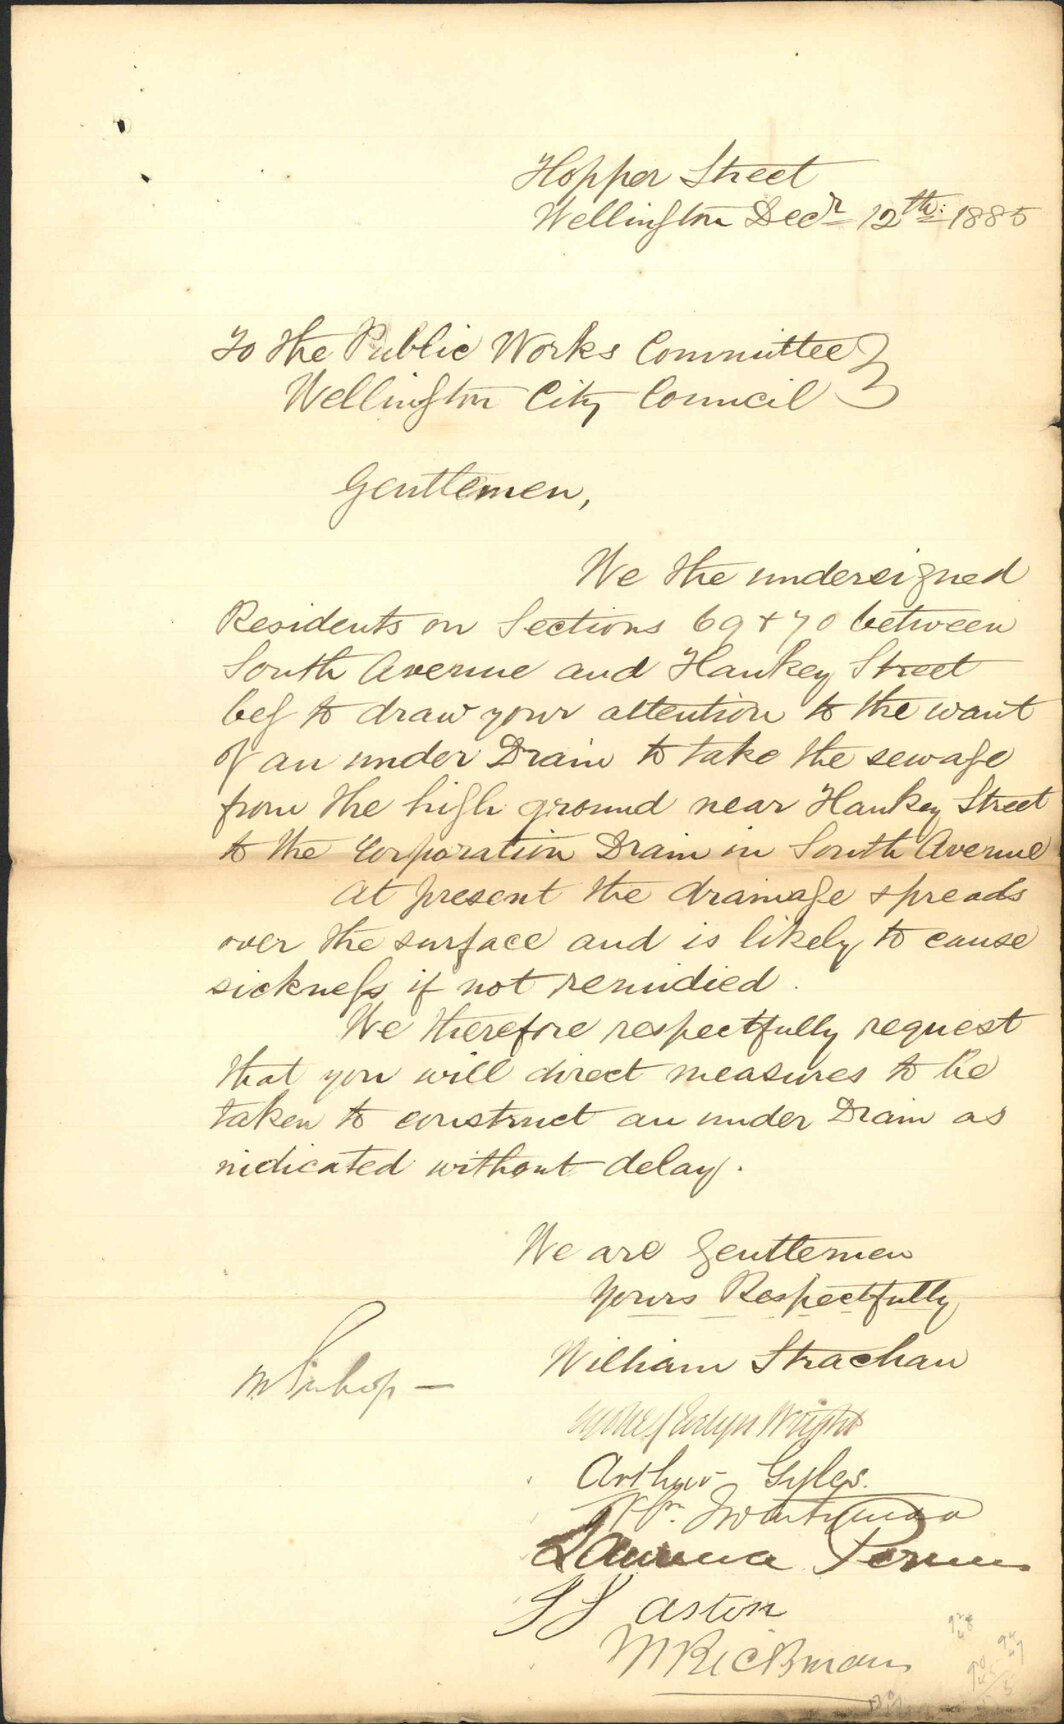 Hopper Street
Wellington Decr 12th: 1885
To the Public Works Committee
Wellington City Council
Gentlemen,
We the undersigned
Residents on Sections 69 + 70 between
South Avenue and Hankey Street
beg to draw your attention to the want
of an under Drain to take the sewage
from the high ground near Hankey Street
to the Corporation Drain in South Avenue
At present the drainage spreads
over the surface and is likely to cause
sickness if not remidied.
We therefore respectfully request
that you will direct measures to be
taken to construct an under Drain as
indicated without delay.
We are Gentlemen
Yours Respectfully
William Strachan
Wright
Arthur Gyles.
Aston
M Rickman